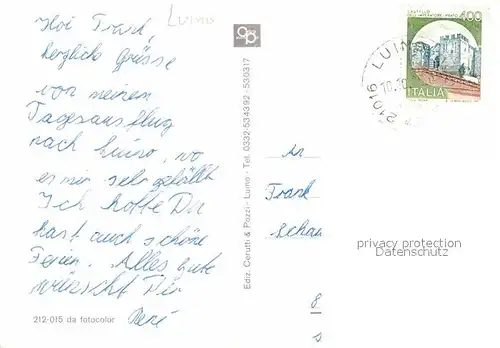 Luino
Hoi Frank,
herzliche Grüsse
von meinem
Tagesausflug
nach Luino, wo
es mir sehr gefällt
Ich hoffe Du
hast auch schöne
Ferien. Alles Gute
wünscht Dir
René
212-015 da fotocolor
Ediz. Cerutti & Pozzi - Luino - Tel. 0332-534392 - 530317
400
ITALIA
21016 LUIN
An
Frank
Schau
8
privacy protection
Datenschutz